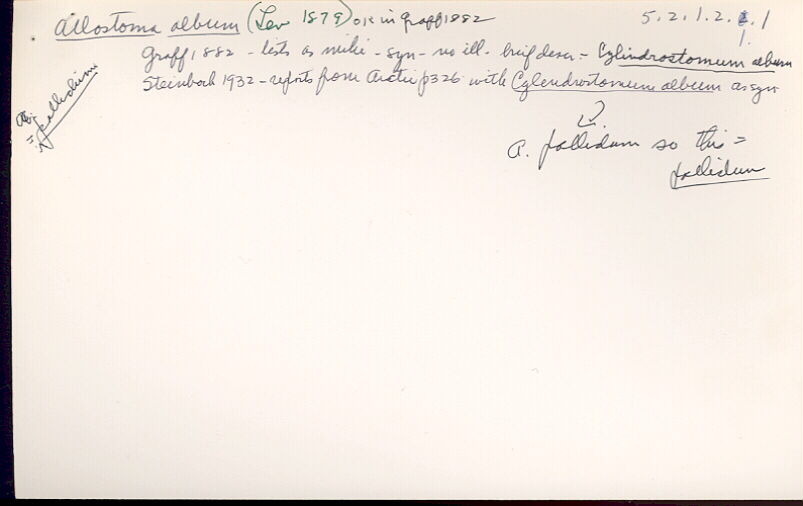 Allostoma album (Lev 1879) OK in Graff 1882
5.2.1.2.1.1
Graff 1882 - lists as - syn - no ill - brief descr. - Cylindrostomum album
Steinbock 1932 - reports from Arctic p326 with Cylendrostomum album as syn
= pallidum
A. pallidum so this =
pallidum